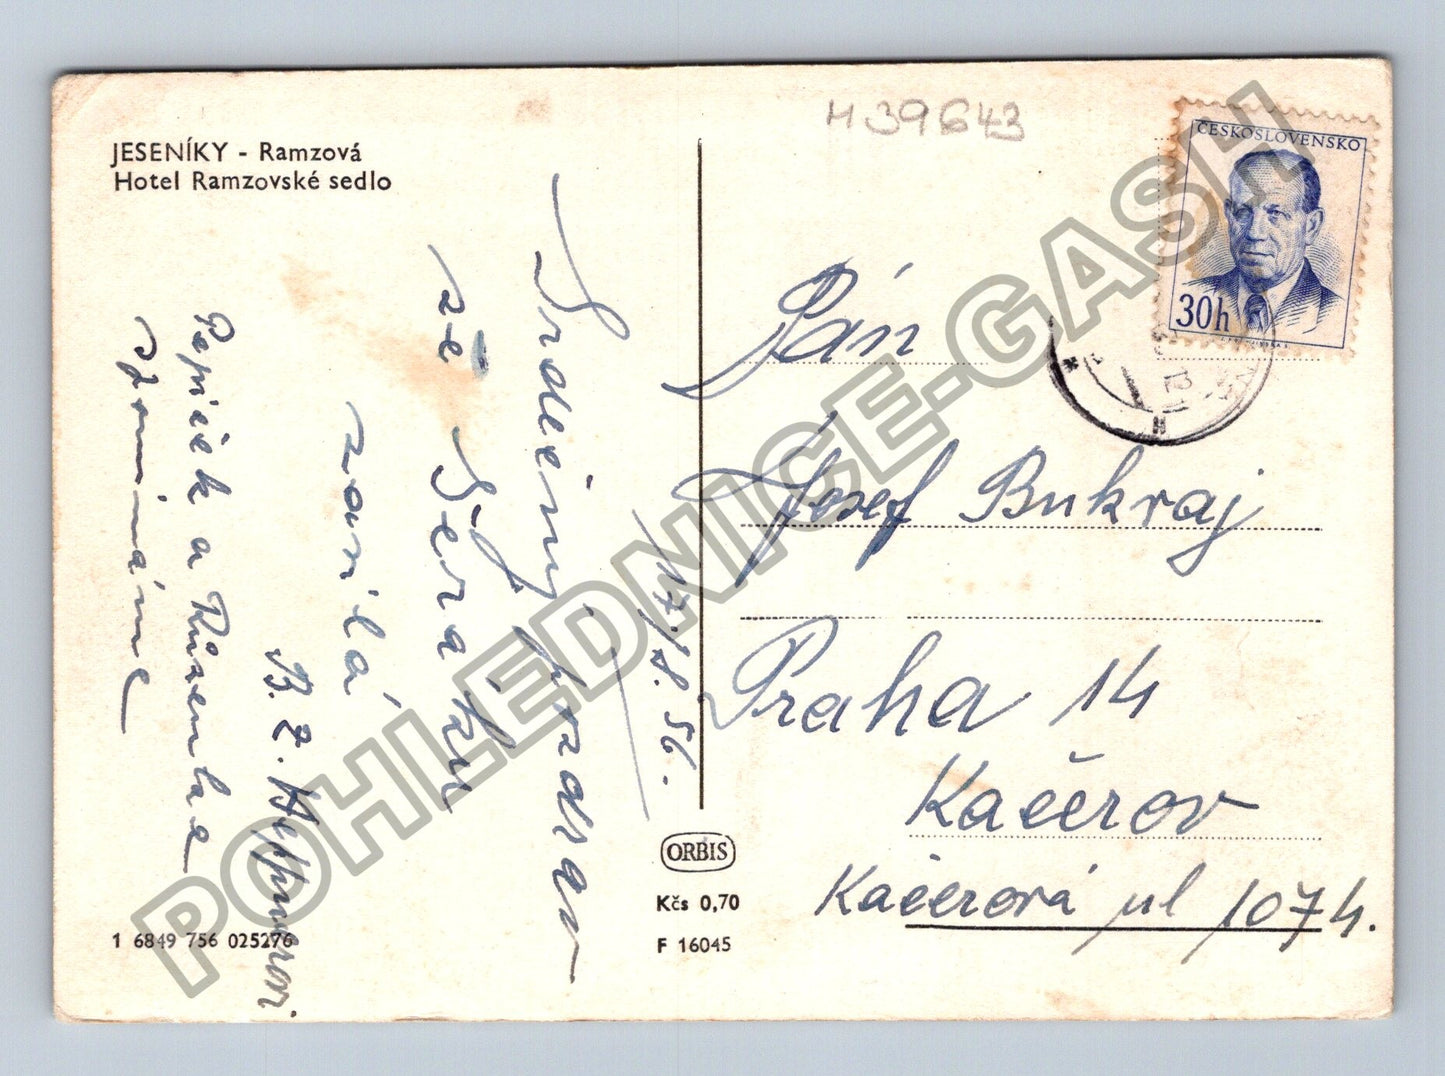 JESENÍKY - Ramzová
Hotel Ramzovské sedlo
H 39643
ČESKOSLOVENSKO
30h
Srdečný pozdrav
ze Šeráku
zasílá
B. Z.
Pepíček a Růženka
vzpomínáme
17./8. 56.
Pán
Josef Bukraj
Praha 14
Kačerov
Kačerová ul 1074.
ORBIS
Kčs 0,70
F 16045
1 6849 756 025276
POHLEDNICE-GASH